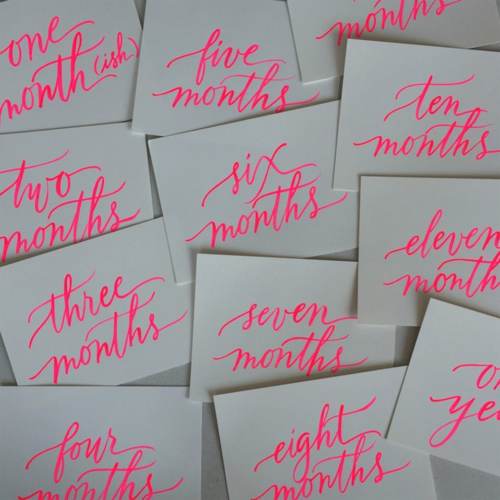 one
month (ish)
two
months
three
months
four
months
five
months
six
months
seven
months
eight
months
months
ten
months
eleven
month
ye